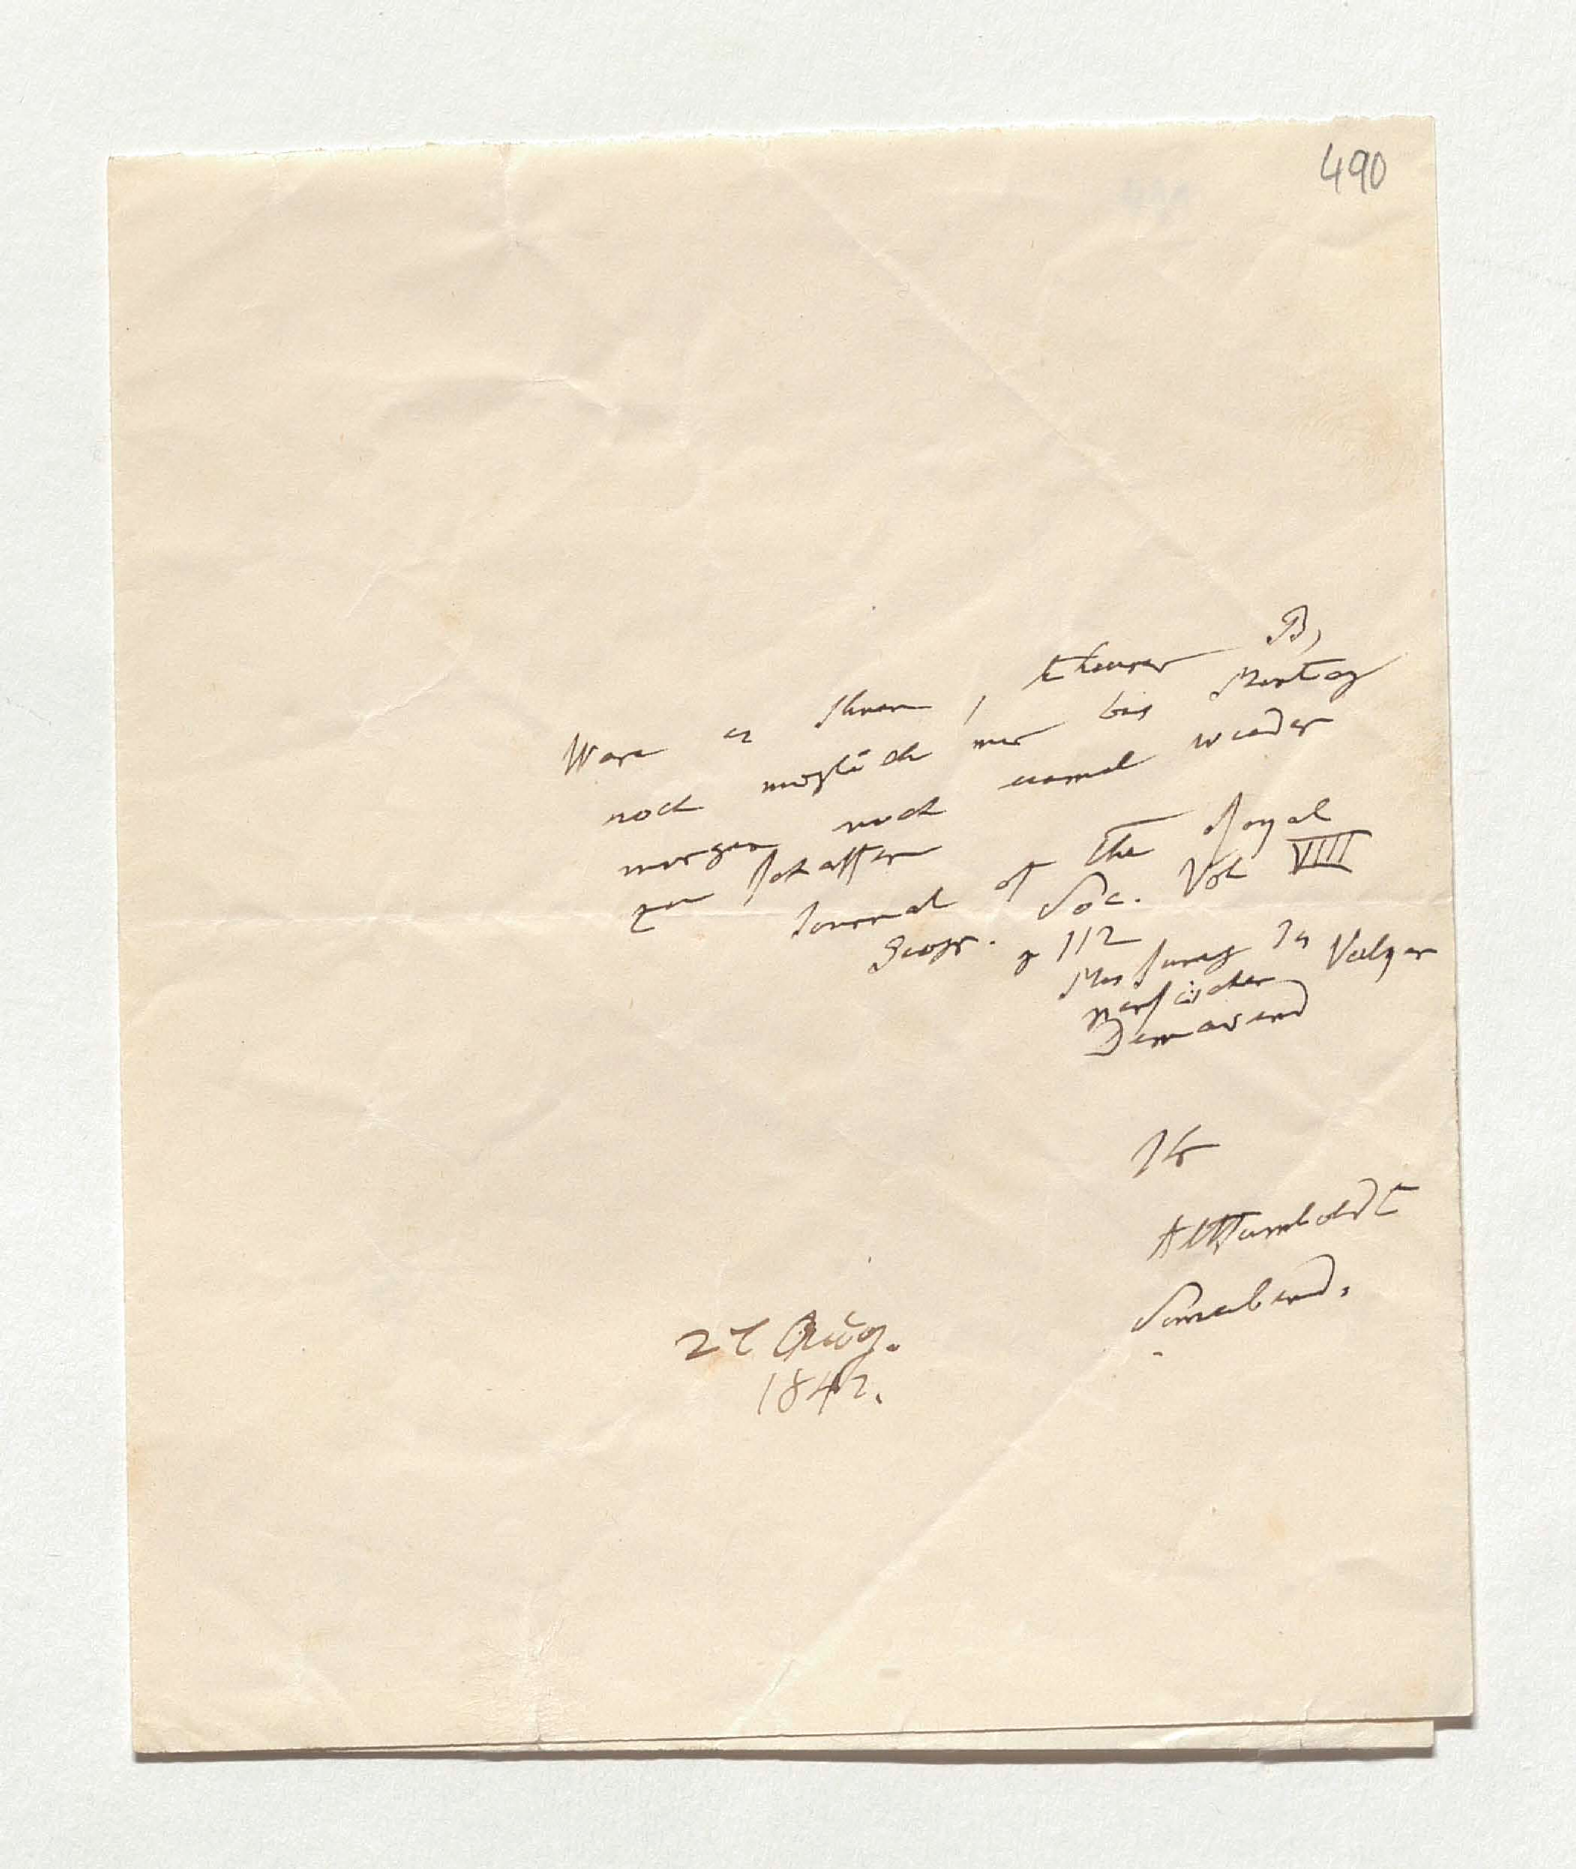 490
Wäre es Ihnen, theurer B,
noch möglich mir bis Montag
morgen noch einmal wieder
zu schaffen
Journal of the Royal
Geogr. Soc. Vol VIII
p 112
Messung des Vulkan
persischen
Demavend
Ihr
AlHumboldt
Sonnabend.
27 Aug.
1842.